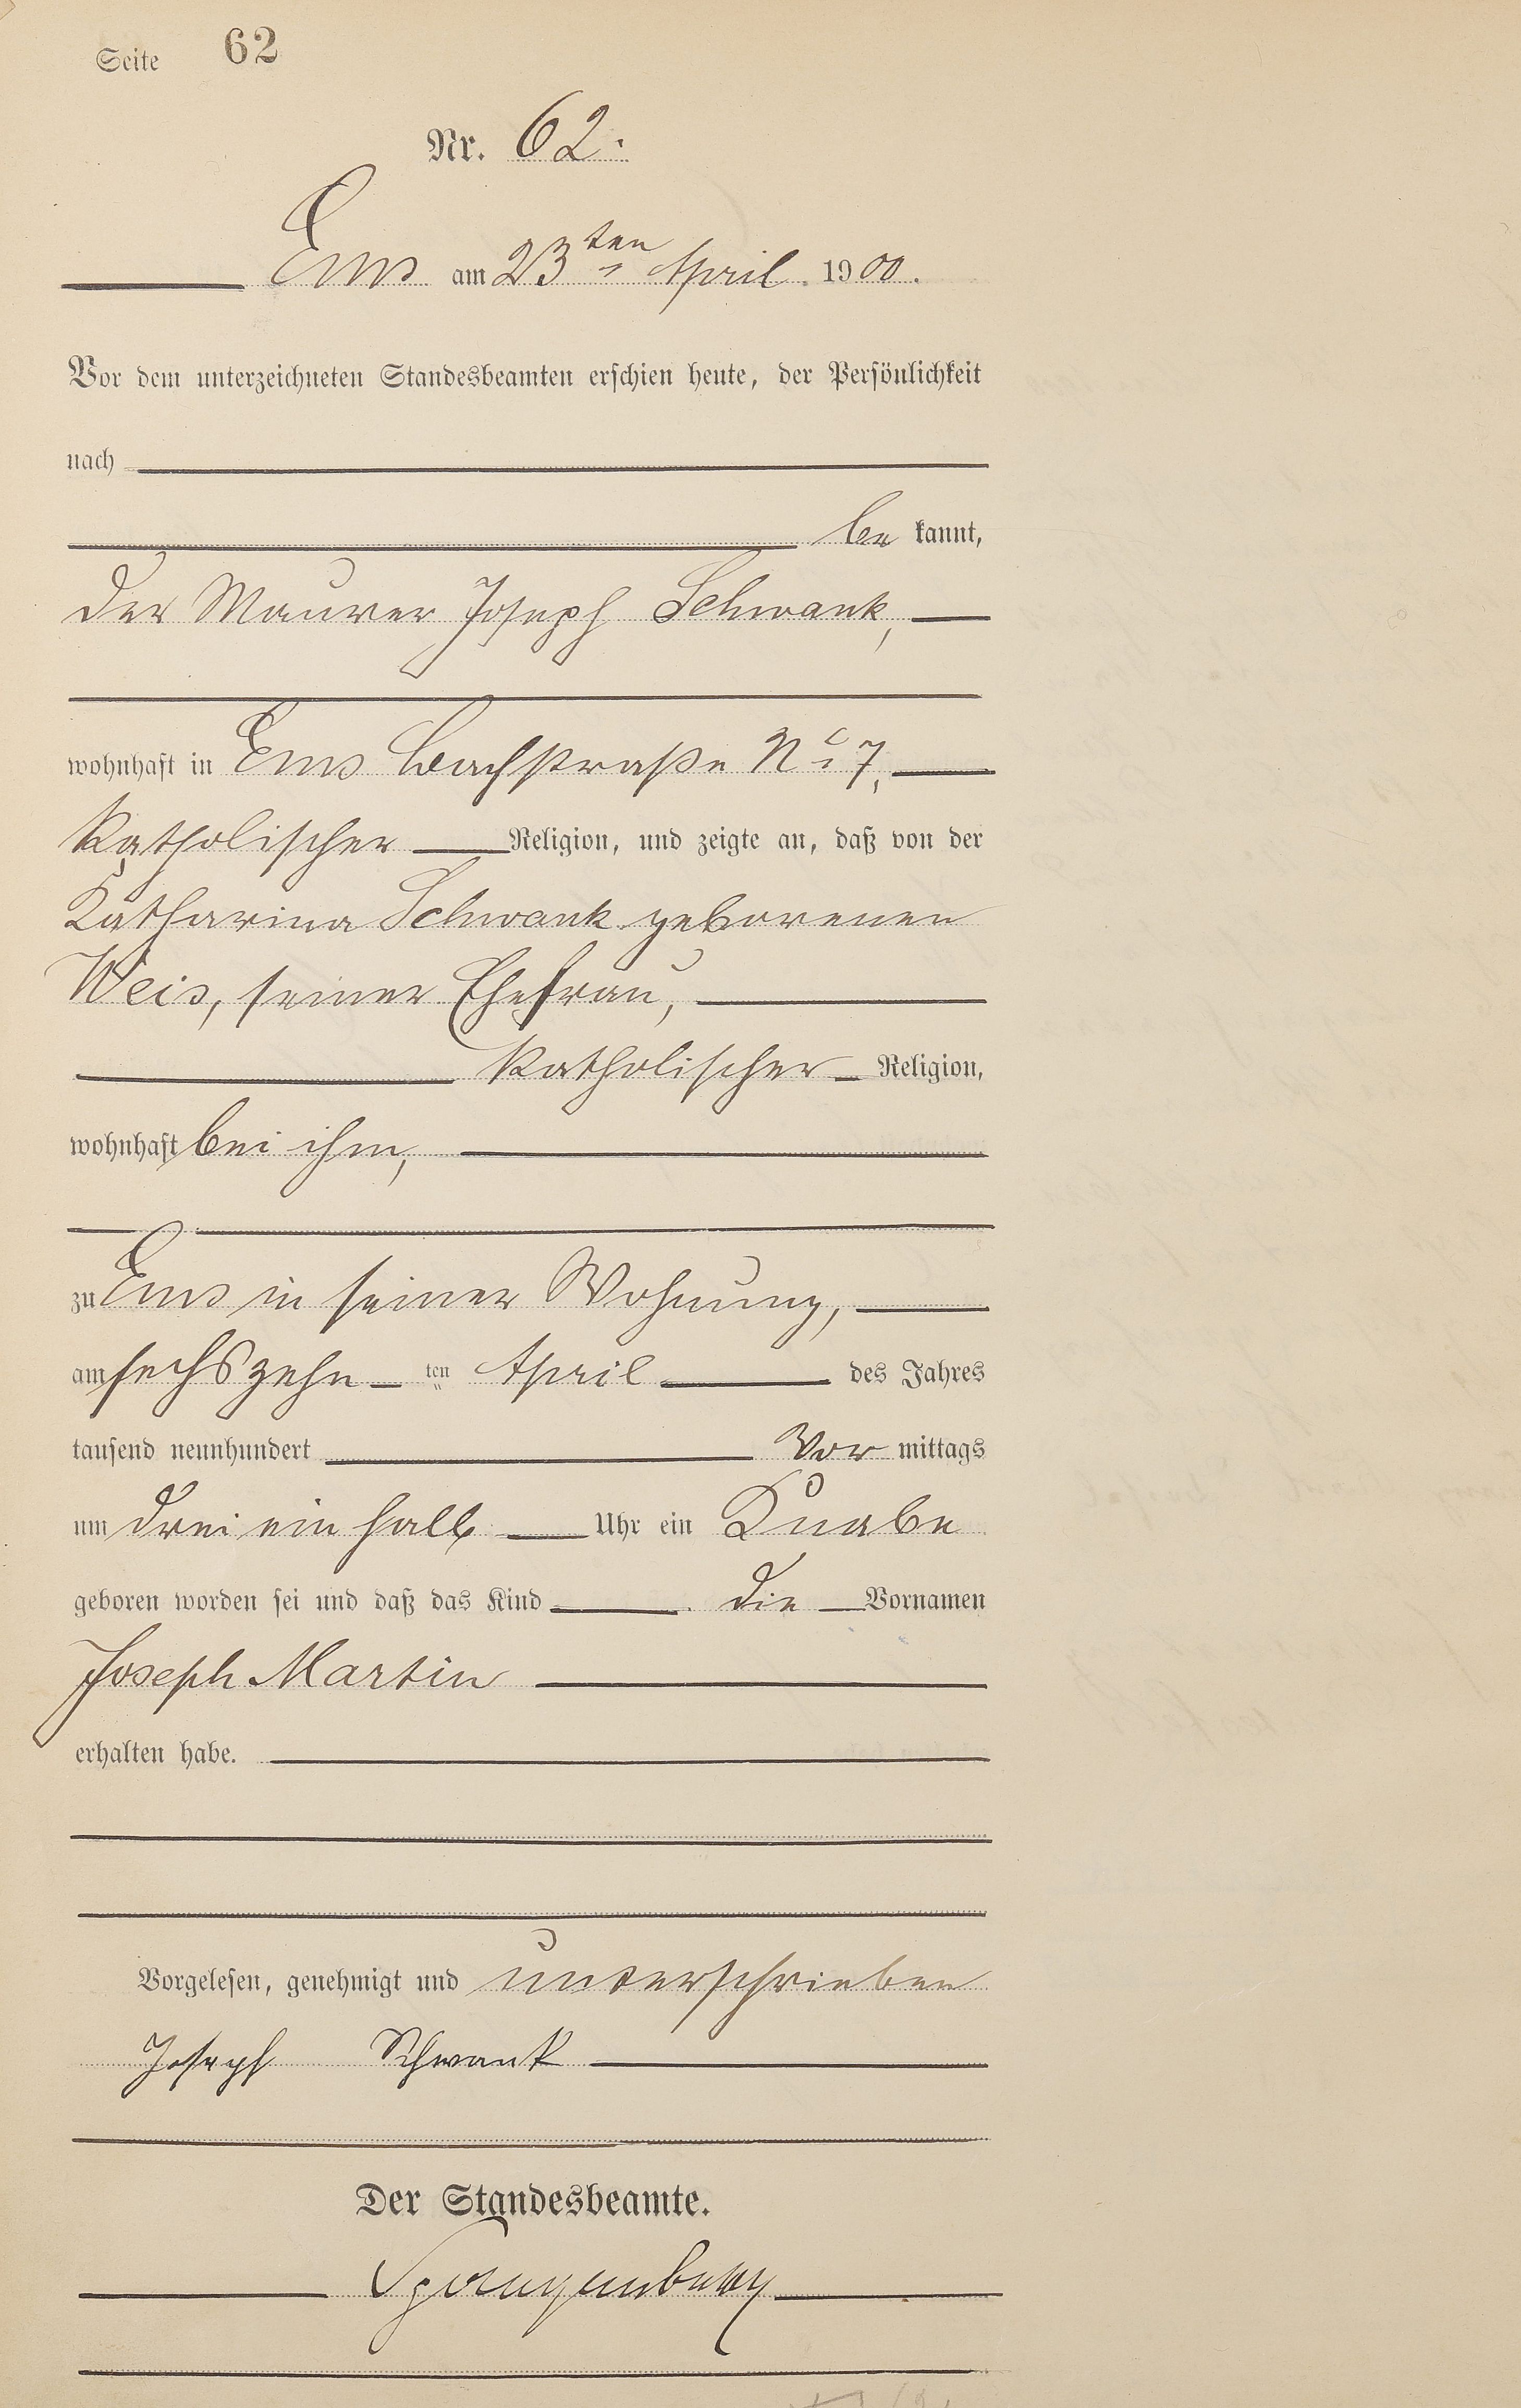 Seite 62
Nr. 62.
Ems am 23ten April 1900.
Vor dem unterzeichneten Standesbeamten erschien heute, der Persönlichkeit
nach
be kannt,
der Maurer Joseph Schwank,
wohnhaft in Ems Bachstraße No 7,
katholischer Religion, und zeigte an, daß von der
Katharina Schwank geborenen
Weis, seiner Ehefrau,
katholischer Religion,
wohnhaft bei ihm,
zu Ems in seiner Wohnung,
am sechszehn ten April des Jahres
tausend neunhundert Vor mittags
um drei ein halb Uhr ein Knabe
geboren worden sei und daß das Kind die Vornamen
Joseph Martin
erhalten habe.
Vorgelesen, genehmigt und unterschrieben
Joseph Schwank
Der Standesbeamte.
Spangenberg